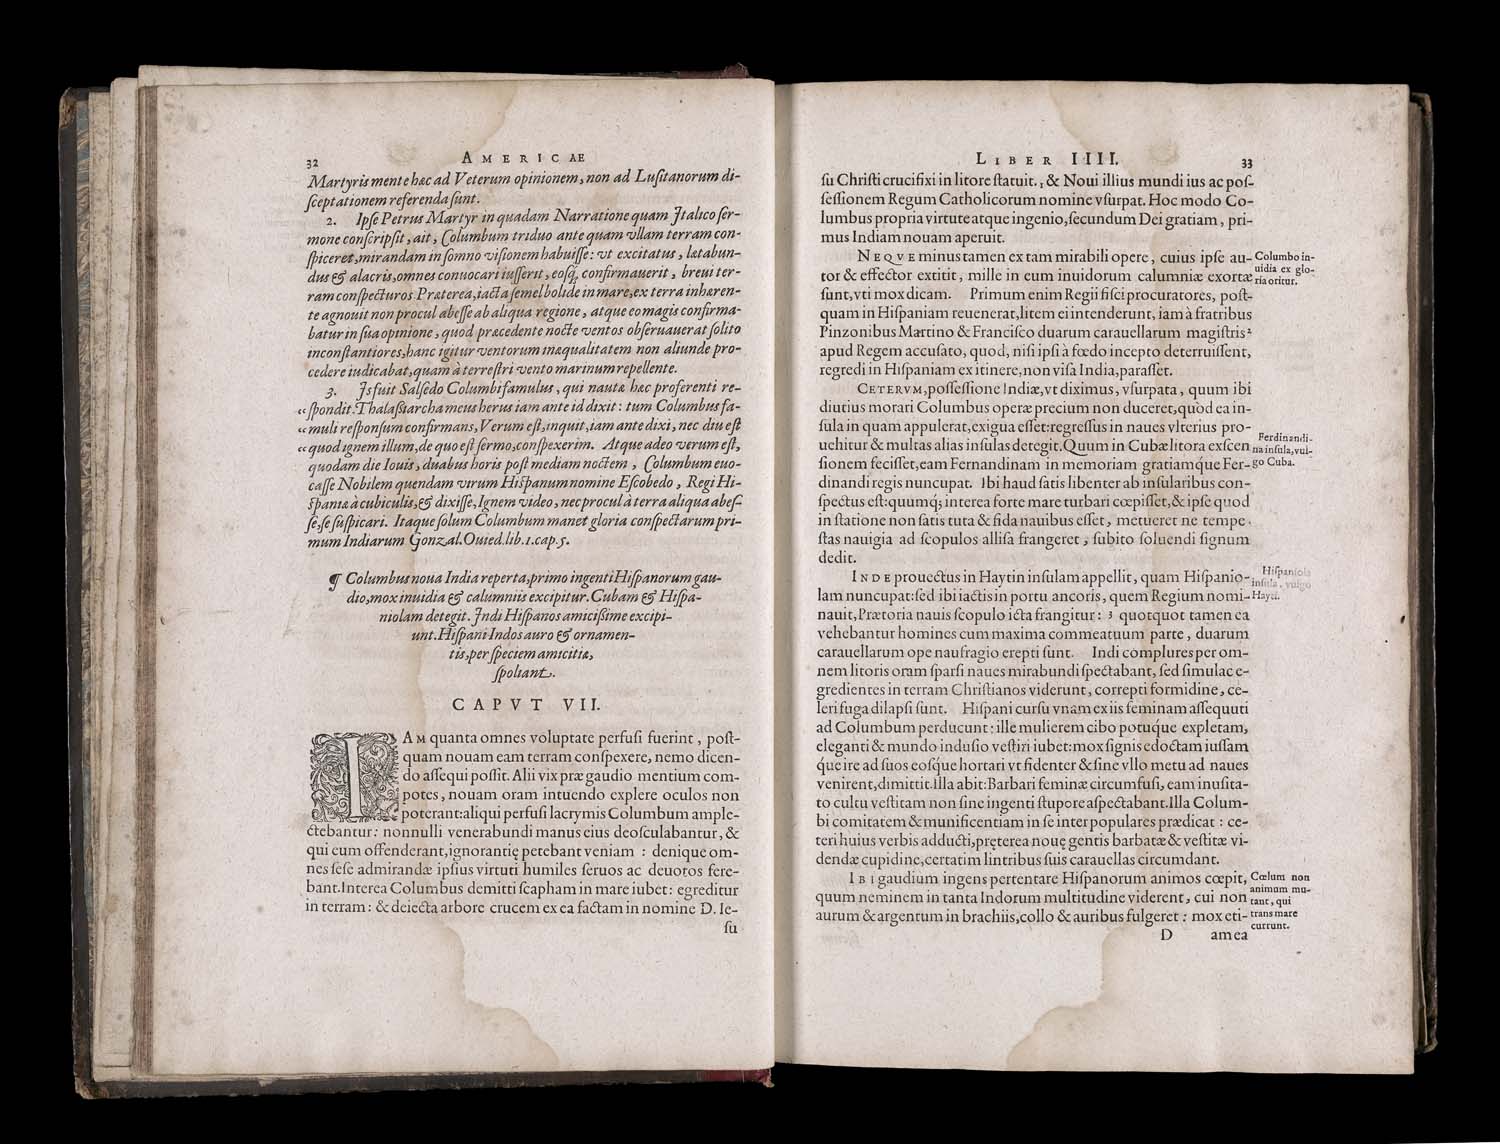 32
AMERICAE
Martyris mente hæc ad Veterum opinionem, non ad Lusitanorum di-
sceptationem referenda sunt.
2. Ipse Petrus Martyr in quadam Narratione quam Italico ser-
mone conscripsit, ait, Columbum triduo ante quam vllam terram con-
spiceret, mirandam in somno visionem habuisse: vt excitatus, lætabun-
dus & alacris, omnes conuocari iusserit, eosq; confirmauerit, breui ter-
ram conspecturos. Præterea, iacta semel bolide in mare, ex terra inhæren-
te agnouit non procul abesse ab aliqua regione, atque eo magis confirma-
batur in sua opinione, quod præcedente nocte ventos obseruauerat solito
inconstantiores, hanc igitur ventorum inæqualitatem non aliunde pro-
cedere iudicabat, quam à terrestri vento marinum repellente.
3. Is fuit Salsedo Columbi famulus, qui nautæ hæc proferenti re-
„ spondit. Thalassiarcha meus herus iam ante id dixit: tum Columbus fa-
„ muli responsum confirmans, Verum est, inquit, iam ante dixi, nec diu est
„ quod ignem illum, de quo est sermo, conspexerim. Atque adeo verum est,
quodam die Iouis, duabus horis post mediam noctem, Columbum euo-
casse Nobilem quendam virum Hispanum nomine Escobedo, Regi Hi-
spaniæ à cubiculis, & dixisse, Ignem video, nec procul à terra aliqua abes-
se, se suspicari. Itaque solum Columbum manet gloria conspectarum pri-
mum Indiarum Gonzal. Ouied. lib. 1. cap. 5.
¶ Columbus noua India reperta, primo ingenti Hispanorum gau-
dio, mox inuidia & calumniis excipitur. Cubam & Hispa-
niolam detegit. Indi Hispanos amicissime excipi-
unt. Hispani Indos auro & ornamen-
tis, per speciem amicitiæ,
spoliant.
CAPVT VII.
IAM quanta omnes voluptate perfusi fuerint, post-
quam nouam eam terram conspexere, nemo dicen-
do assequi possit. Alii vix præ gaudio mentium com-
potes, nouam oram intuendo explere oculos non
poterant: aliqui perfusi lacrymis Columbum ample-
ctebantur: nonnulli venerabundi manus eius deosculabantur, &
qui eum offenderant, ignorantię petebant veniam: denique om-
nes sese admirandæ ipsius virtuti humiles seruos ac deuotos fere-
bant. Interea Columbus demitti scapham in mare iubet: egreditur
in terram: & deiecta arbore crucem ex ea factam in nomine D. Ie-
su
LIBER IIII.
33
su Christi crucifixi in litore statuit., & Noui illius mundi ius ac pos-
sessionem Regum Catholicorum nomine vsurpat. Hoc modo Co-
lumbus propria virtute atque ingenio, secundum Dei gratiam, pri-
mus Indiam nouam aperuit.
NEQVE minus tamen ex tam mirabili opere, cuius ipse au-
tor & effector extitit, mille in eum inuidorum calumniæ exortæ
sunt, vti mox dicam. Primum enim Regii fisci procuratores, post-
quam in Hispaniam reuenerat, litem ei intenderunt, iam à fratribus
Pinzonibus Martino & Francisco duarum carauellarum magistris 2
apud Regem accusato, quod, nisi ipsi à fœdo incepto deterruissent,
regredi in Hispaniam ex itinere, non visa India, parasset.
Columbo in-
uidia ex glo-
ria oritur.
CETERVM, possessione Indiæ, vt diximus, vsurpata, quum ibi
diutius morari Columbus operæ precium non duceret, quòd ea in-
sula in quam appulerat, exigua esset: regressus in naues vlterius pro-
uehitur & multas alias insulas detegit. Quum in Cubæ litora exscen
sionem fecisset, eam Fernandinam in memoriam gratiamq́ue Fer-
dinandi regis nuncupat. Ibi haud satis libenter ab insularibus con-
spectus est: quumq; interea forte mare turbari cœpisset, & ipse quod
in statione non satis tuta & fida nauibus esset, metueret ne tempe-
stas nauigia ad scopulos allisa frangeret, subito soluendi signum
dedit.
Ferdinandi-
na insula, vul-
go Cuba.
INDE prouectus in Haytin insulam appellit, quam Hispanio-
lam nuncupat: sed ibi iactis in portu ancoris, quem Regium nomi-
nauit, Prætoria nauis scopulo icta frangitur: 3 quotquot tamen ea
vehebantur homines cum maxima commeatuum parte, duarum
carauellarum ope naufragio erepti sunt. Indi complures per om-
nem litoris oram sparsi naues mirabundi spectabant, sed simulac e-
gredientes in terram Christianos viderunt, correpti formidine, ce-
leri fuga dilapsi sunt. Hispani cursu vnam ex iis feminam assequuti
ad Columbum perducunt: ille mulierem cibo potuq́ue expletam,
eleganti & mundo indusio vestiri iubet: mox signis edoctam iussam
q́ue ire ad suos eosq́ue hortari vt fidenter & sine vllo metu ad naues
venirent, dimittit. Illa abit: Barbari feminæ circumfusi, eam inusita-
to cultu vestitam non sine ingenti stupore aspectabant. Illa Colum-
bi comitatem & munificentiam in se inter populares prædicat: ce-
teri huius verbis adducti, pręterea nouę gentis barbatæ & vestitæ vi-
dendæ cupidine, certatim lintribus suis carauellas circumdant.
Hispaniola
insula, vulgo
Hayti.
IBI gaudium ingens pertentare Hispanorum animos cœpit,
quum neminem in tanta Indorum multitudine viderent, cui non
aurum & argentum in brachiis, collo & auribus fulgeret: mox eti-
Cœlum non
animum mu-
tant, qui
trans mare
currunt.
D
am ea